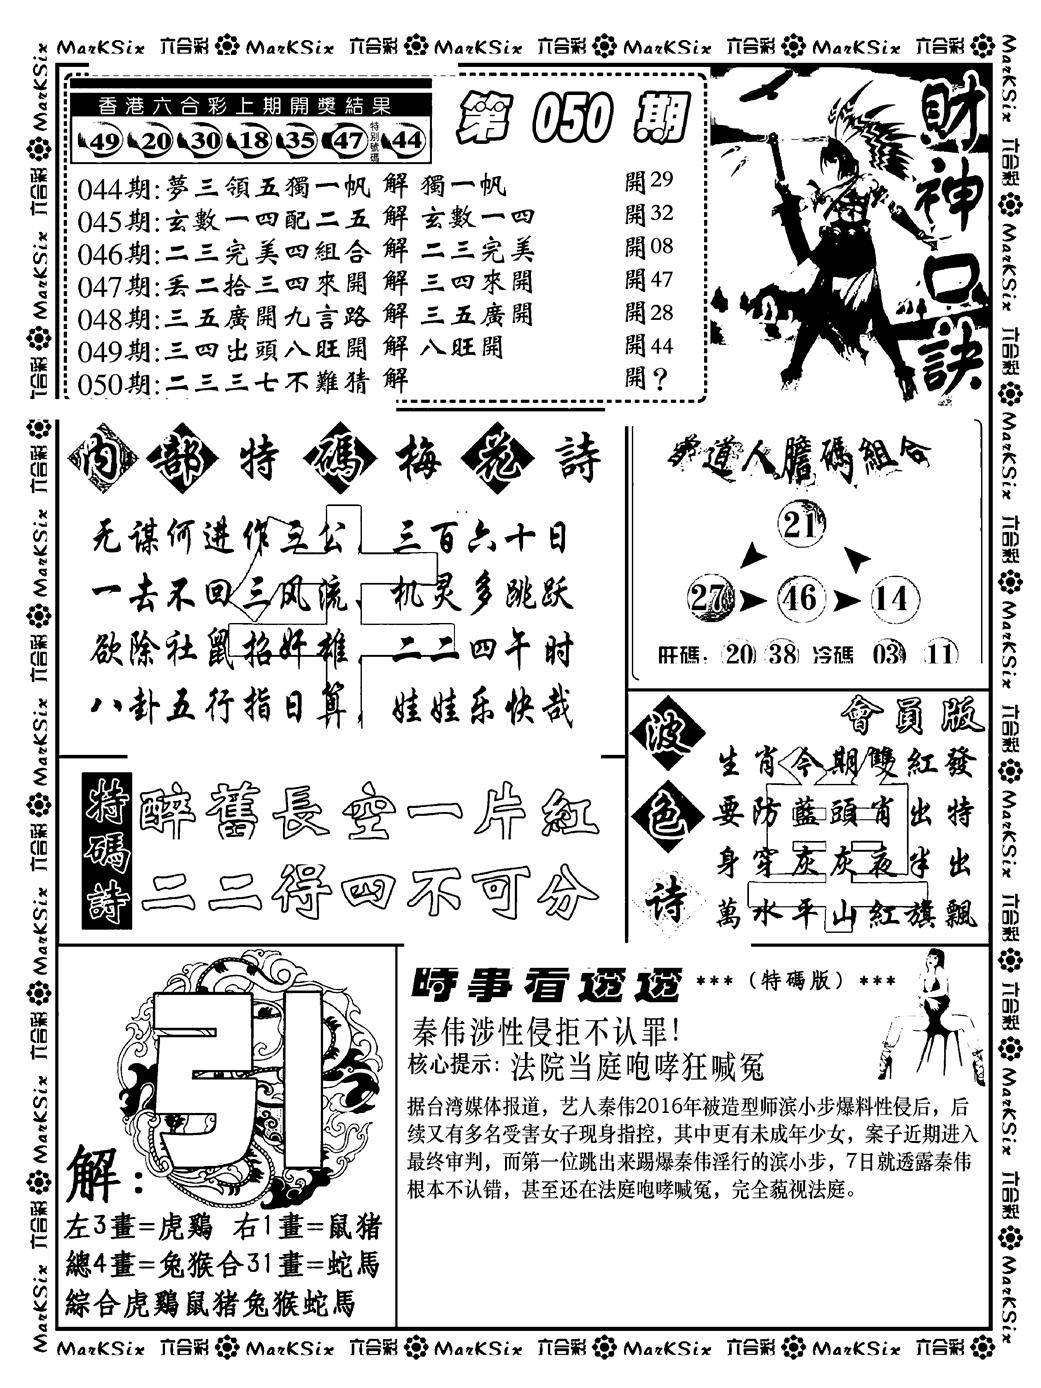 MarKSix 六合彩 MarKSix 六合彩 MarKSix 六合彩 MarKSix 六合彩 MarKSix 六合彩
香港六合彩上期開獎結果
49 20 30 18 35 47 特別號碼 44
第 050 期
財神口訣
044期:夢三領五獨一帆 解 獨一帆 開29
045期:玄數一四配二五 解 玄數一四 開32
046期:二三完美四組合 解 二三完美 開08
047期:丢二拾三四來開 解 三四來開 開47
048期:三五廣開九言路 解 三五廣開 開28
049期:三四出頭八旺開 解 八旺開 開44
050期:二三三七不難猜 解 開?
內部特碼梅花詩
无谋何进作三公, 三百六十日
一去不回三风流, 机灵多跳跃
欲除社鼠招奸雄, 二二四午时
八卦五行指日算, 娃娃乐快哉
道人膽碼組合
21
27 46 14
旺碼: 20 38 冷碼 03 11
特碼詩
醉舊長空一片紅
二二得四不可分
波色诗
會員版
生肖今期雙紅發
要防藍頭肖出特
身穿灰灰夜半出
萬水平山紅旗飄
引
解:
左3畫=虎鷄 右1畫=鼠猪
總4畫=兔猴合31畫=蛇馬
綜合虎鷄鼠猪兔猴蛇馬
時事看透透 ***(特碼版)***
秦伟涉性侵拒不认罪!
核心提示: 法院当庭咆哮狂喊冤
据台湾媒体报道，艺人秦伟2016年被造型师滨小步爆料性侵后，后
续又有多名受害女子现身指控，其中更有未成年少女，案子近期进入
最终审判，而第一位跳出来踢爆秦伟淫行的滨小步，7日就透露秦伟
根本不认错，甚至还在法庭咆哮喊冤，完全藐视法庭。
MarKSix 六合彩 MarKSix 六合彩 MarKSix 六合彩 MarKSix 六合彩 MarKSix 六合彩